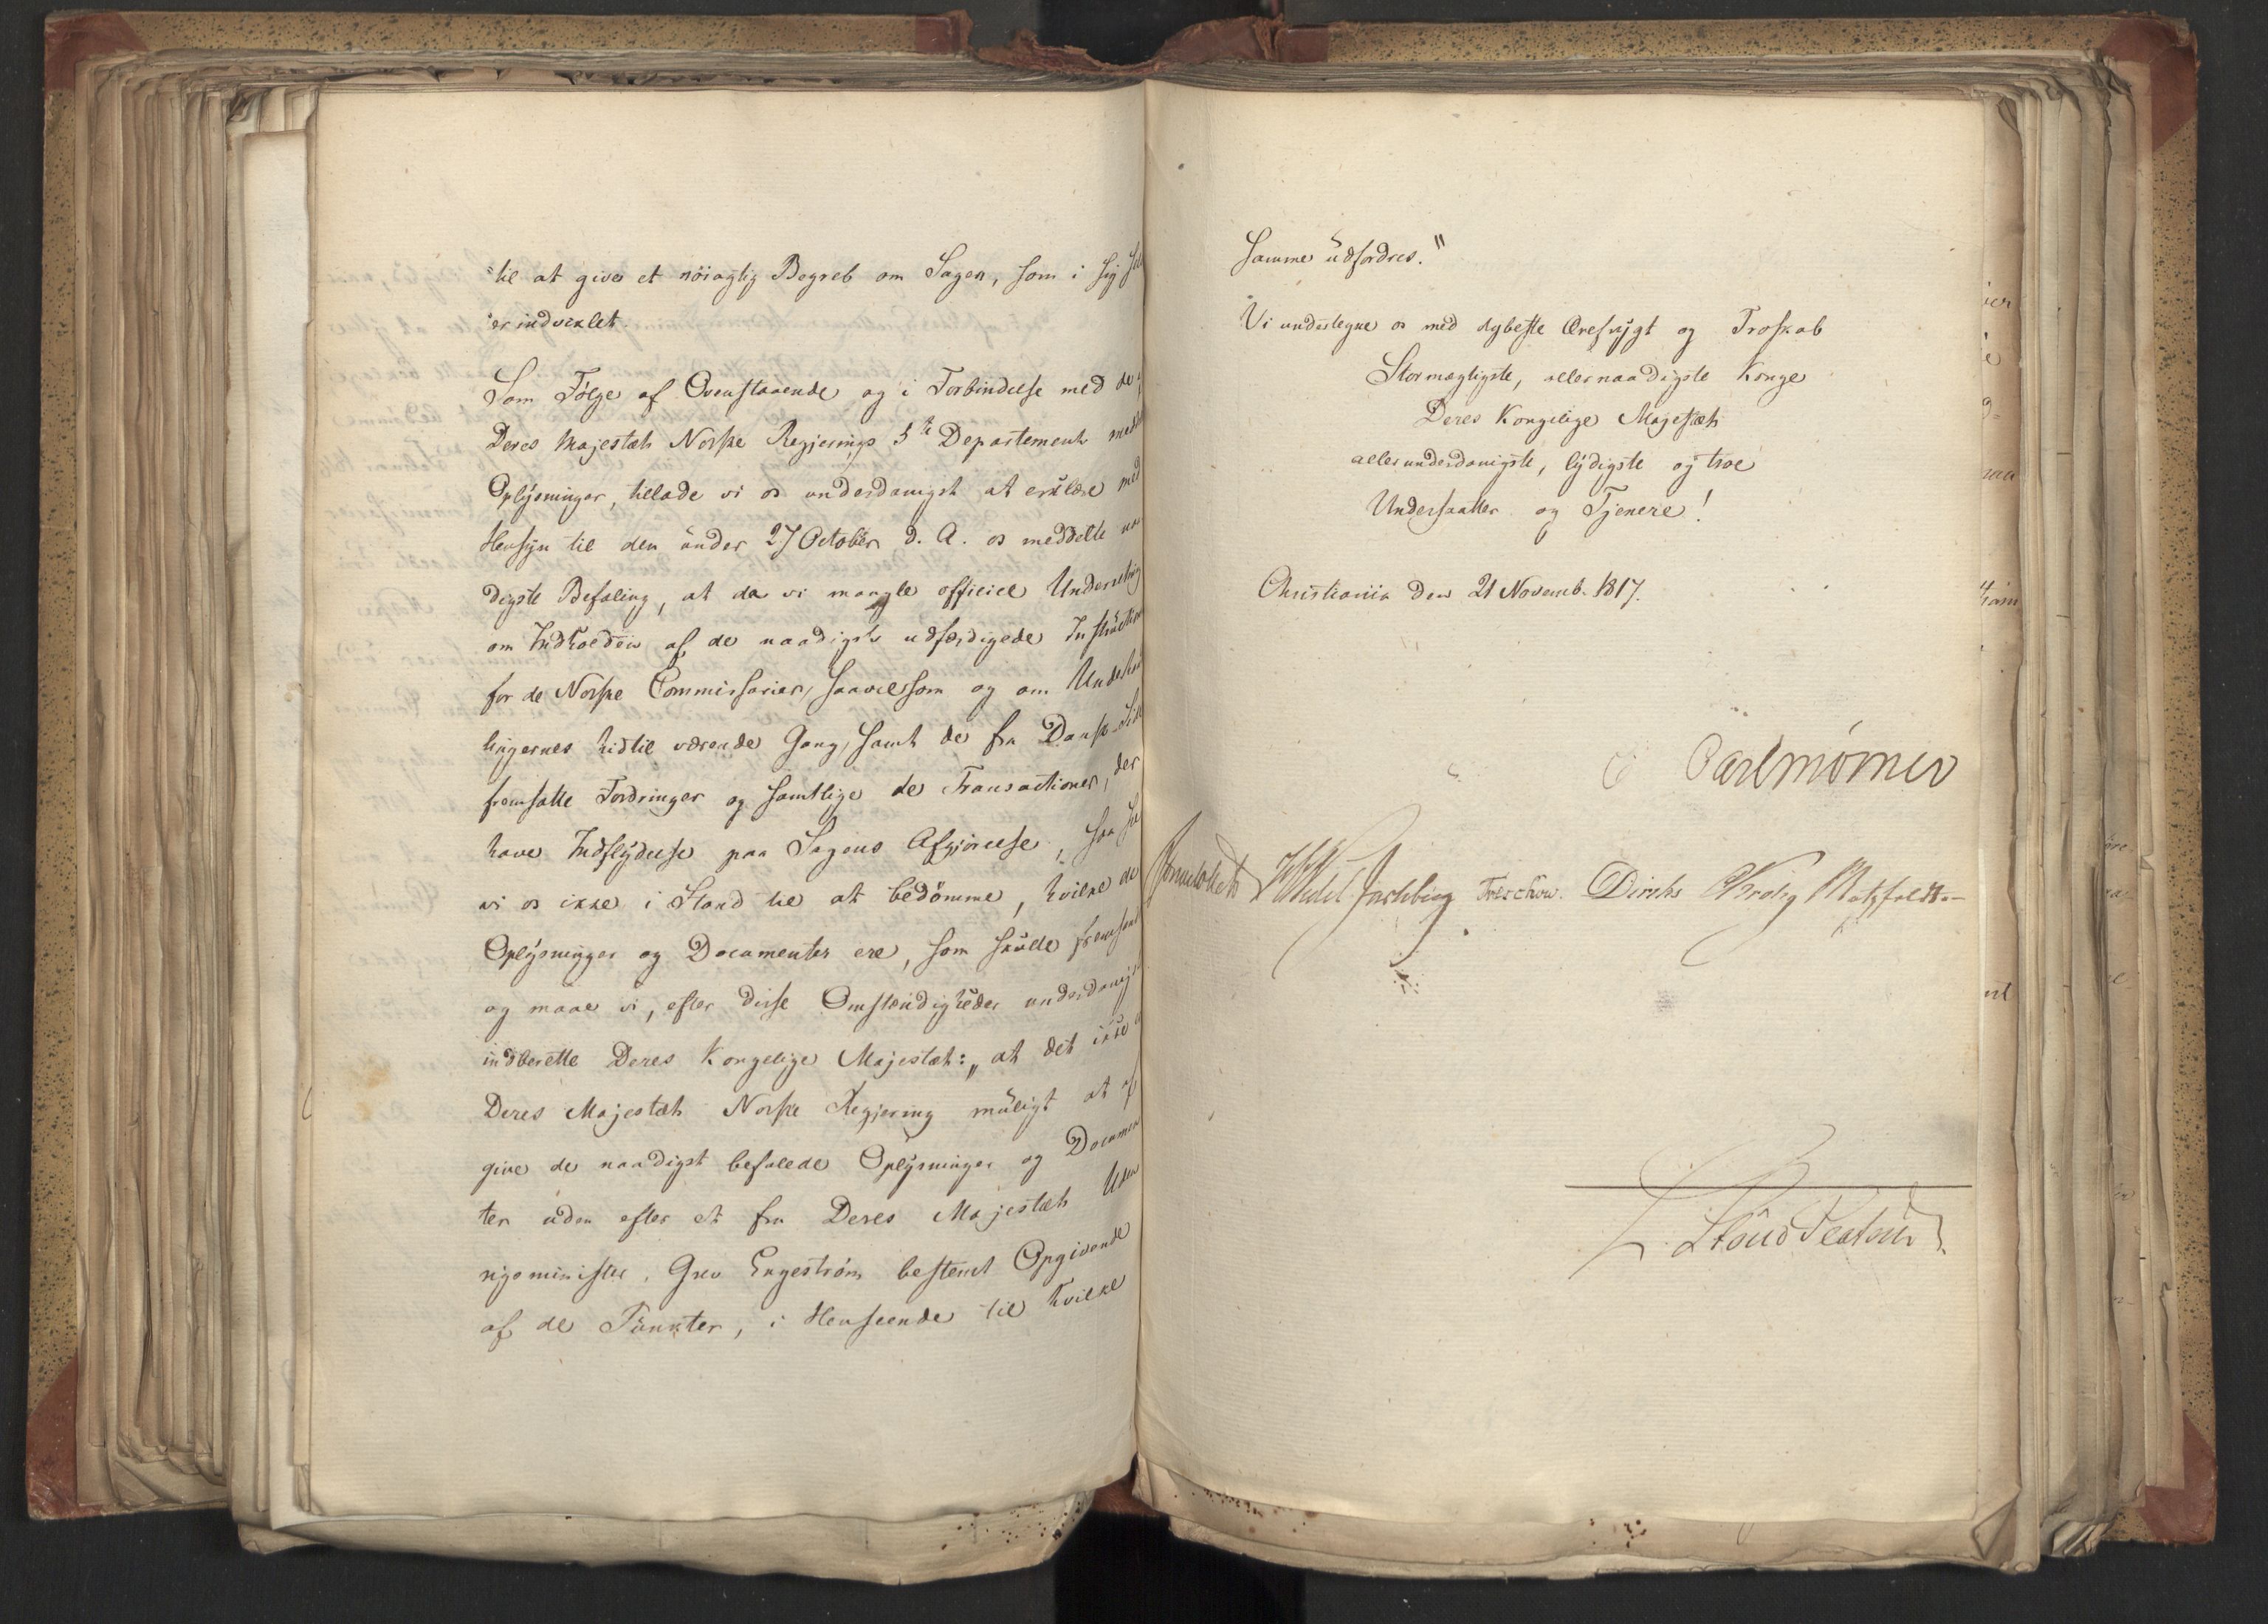 "til at give et nöiagtig Begreb om Sagen, som i sig
"er indviklet.
Som Fölge af Ovenstaaende og i Forbindelse med de
Deres Majestæts Norske Regjerings 5te Departement
Oplysninger, tillade vi os underdanigst at erklære med
Hensyn til den under 27 October d. A. os meddelte naa
digste Befaling, at da vi mangle officiel Underretning
om Indholden af de naadigst udfærdigede Instruction
for de Norske Commissarier, saavelsom og om Undehand
lingernes hidtil værende Gang, samt de fra Dansk Side
fremsatte Fordringer og samtlige de Transactioner, der
have Indflydelse paa Sagens Afgjörelse, saa see
vi os ikke i Stand til at bedömme, hvilke de
Oplysninger og Documenter ere, som skulle fremsend
og maae vi, efter disse Omstændigheder underdanigst
indberette Deres Kongelige Majestæt: „at det ikke
Deres Majestæts Norske Regjering muligt at af
give de naadigst befalede Oplysninger og Documen
ter uden efter et fra Deres Majestæts Uden
rigsminister, Grev Engeström bestemt Opgivende
af de Punkter, i Henseende til hvilke
samme udfordres."
Vi undertegne os med dybeste Ærefrygt og Troskab
Stormægtigste, allernaadigste Konge
Deres Kongelige Majestæts
allerunderdanigste, lydigste og troe
Undersaatter og Tjenere!
Christiania den 21 Novemb. 1817.
Carl Mörner
Sommerhielm Treschow. Diriks Krohg Motzfeldt